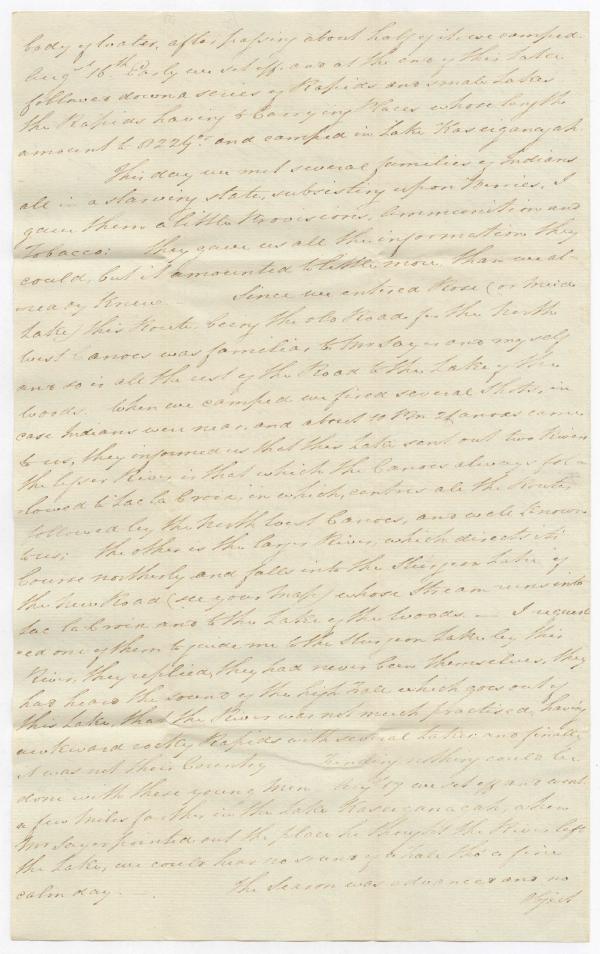 body of water, after passing about half of it we camped.
Augst 16th Early we set off and at the end of this Lake
followed down a series of Rapids and small Lakes
the Rapids having 6 Carrying Places whose lengths
amount to 1224 yds and camped in Lake Kaseiganagah.
This day we met several families of Indians
all in a starving state, subsisting upon Berries, I
gave them a little Provisions, Ammunition and
Tobacco: they gave us all the information they
could, but it amounted to little more than we al-
-ready knew. Since we entered Rose (or Mud
Lake) this Route being the old Road for the North
West Canoes was familiar to Mr Sayer and myself
and so is all the rest of the Road to the Lake of the
Woods. When we camped we fired several Shots, in
case Indians were near, and about 10 PM 2 Canoes came
to us, they informed us that this Lake sent out two Rivers
the lesser River is that which the Canoes always fol-
-lowed to Lac la Croix, in which, centres all the Routes
followed by the North West Canoes, and well known
to us; the other is the larger River, which directs its
Course northerly and falls into the Sturgeon Lake of
the New Road (see your Map) whose Stream runs into
Lac la Croix and to the Lake of the Woods. — I request
-ed one of them to guide me to the Sturgeon Lake by this
River, they replied, they had never been themselves, they
had heard the sound of the high Fall which goes out of
this Lake, that the River was not much practised, having
awkward rocky Rapids with several Lakes and finally
it was not their Country Finding nothing could be
done with these young Men Augt 17 we set off and went
a few miles farther in the Lake Kaseiganagah, when
Mr Sayer pointed out the place he thought the River left
the Lake, we could hear no sound of a Fall tho' a fine
calm day. The Season was advanced and no
object